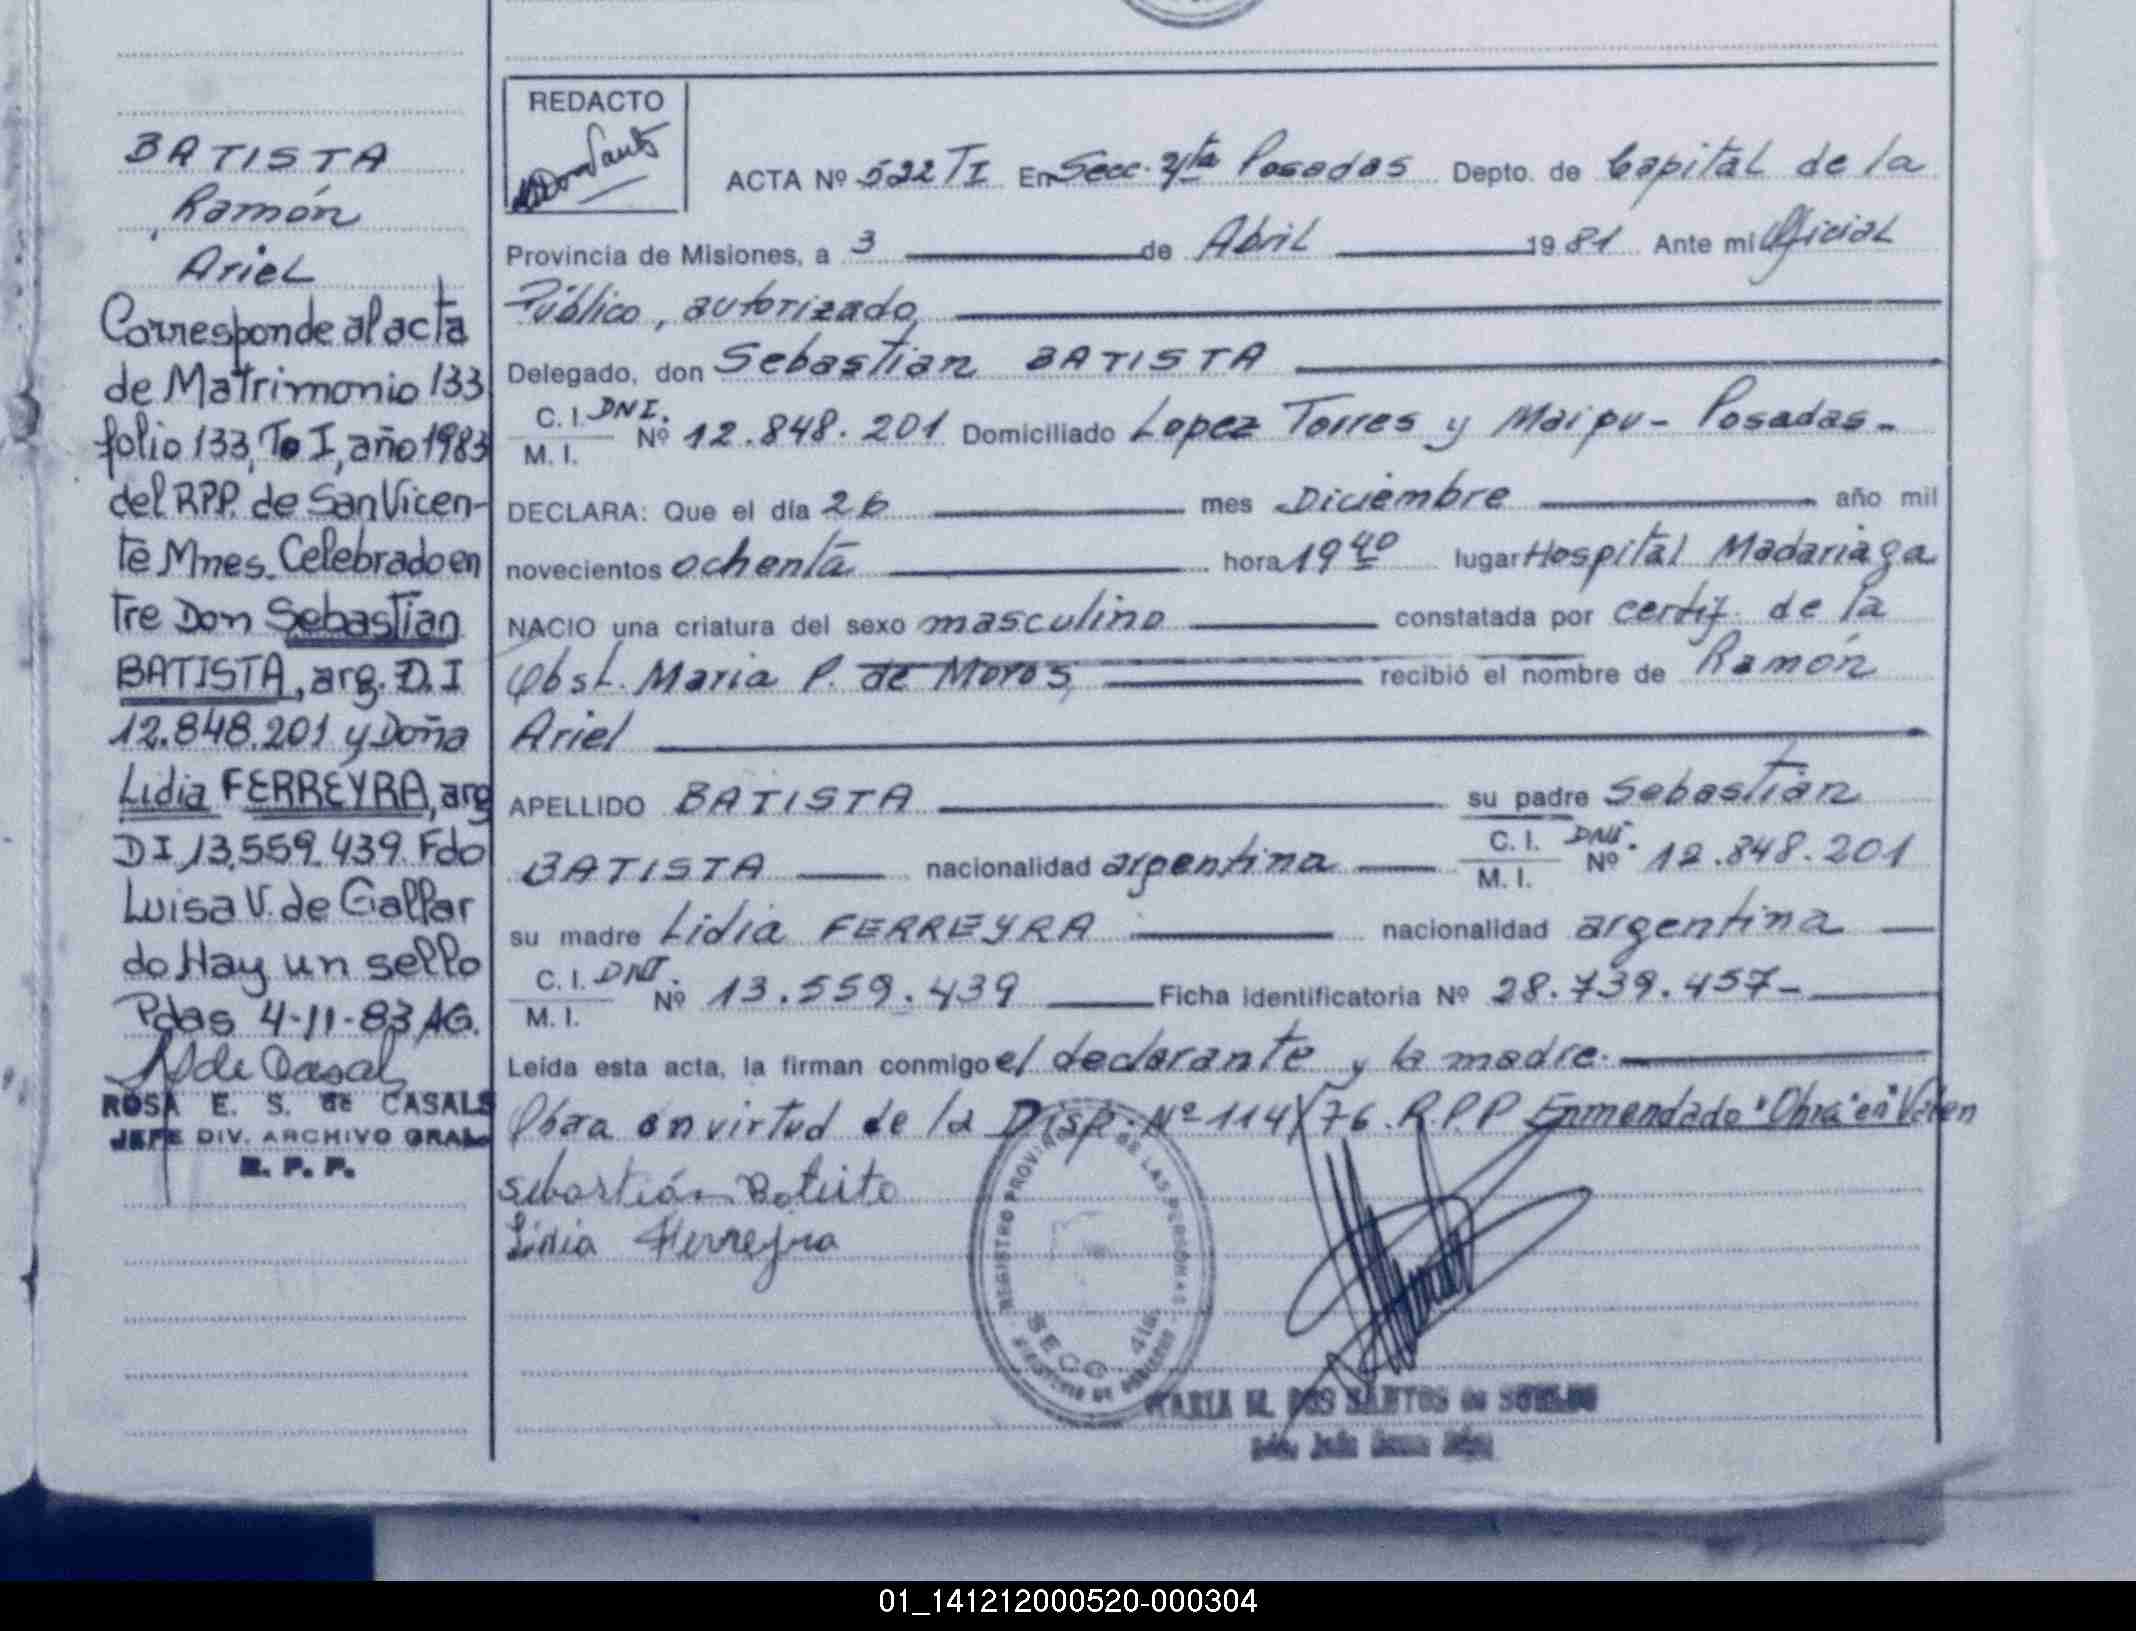 BATISTA
Ramón
Ariel
Corresponde al acta
de Matrimonio 133
folio 133, To I, año 1983
del RPP. de San Vicen-
te Mnes. Celebrado en
tre Don Sebastian
BATISTA, arg. D.I
12.848.201 y Doña
Lidia FERREYRA, arg
DI 13.559.439. Fdo
Luisa V. de Gallar
do Hay un sello
Pdas 4-11-83 AG.
de Casals
ROSA E. S. de CASALS
JEFE DIV. ARCHIVO GRAL.
R. P. P.
REDACTO
ACTA Nº 522 TI En Secc. 4ta Posadas Depto. de Capital de la
Provincia de Misiones, a 3 de Abril 1981 Ante mi Oficial
Público, autorizado,
Delegado, don Sebastian BATISTA
C. I. DNI.
M. I. Nº 12.848.201 Domiciliado Lopez Torres y Maipu - Posadas.-
DECLARA: Que el día 26 mes Diciembre año mil
novecientos ochenta hora 19 40 lugar Hospital Madariaga
NACIO una criatura del sexo masculino constatada por certif. de la
Obst. Maria P. de Moros, recibió el nombre de Ramón
Ariel
APELLIDO BATISTA su padre Sebastian
BATISTA nacionalidad argentina C. I. DNI. M. I. Nº 12.848.201
su madre Lidia FERREYRA nacionalidad argentina
C. I. DNI. M. I. Nº 13.559.439 Ficha identificatoria Nº 28.739.457-
Leída esta acta, la firman conmigo el declarante y la madre.
Obra en virtud de la Disp. Nº 114/76. R.P.P Enmendado "Obra" en" Valen
Sebastián Batista
Lidia Ferreyra
REGISTRO PROVINCIAL DE LAS PERSONAS
SECC. 4ta.
MARIA M. DOS SANTOS de
01_141212000520-000304